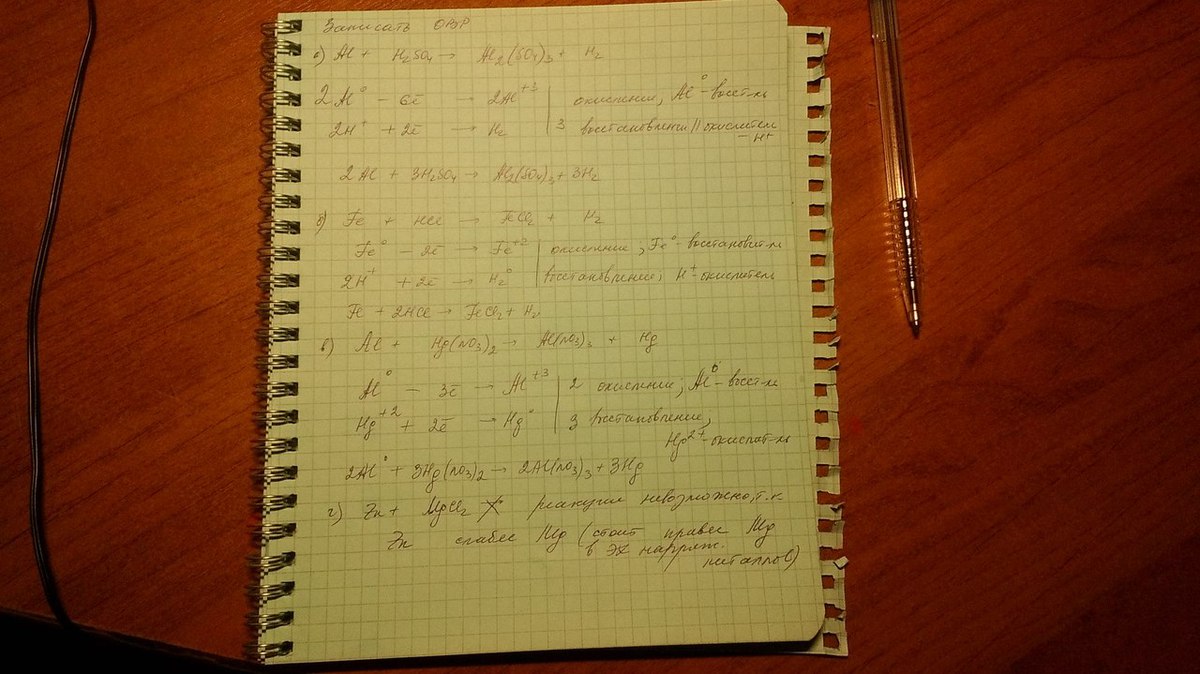 Записать ОВР
а) Al + H2SO4 → Al2(SO4)3 + H2
2Al⁰ − 6ē → 2Al⁺³ | окисление, Al⁰ - восст-ль
2H⁺ + 2ē → H2 | 3 восстановлени окислитель
− H⁺
2Al + 3H2SO4 → Al2(SO4)3 + 3H2
б) Fe + HCl → FeCl2 + H2
Fe⁰ − 2ē → Fe⁺² | окисление, Fe⁰ - восстановит-ль
2H⁺ + 2ē → H2⁰ | восстановление, H⁺ - окислитель
Fe + 2HCl → FeCl2 + H2
в) Al + Hg(NO3)2 → Al(NO3)3 + Hg
Al⁰ − 3ē → Al⁺³ | 2 окисление, Al⁰ - восст-ль
Hg⁺² + 2ē → Hg⁰ | 3 восстановление,
Hg²⁺ - окислит-ль
2Al⁰ + 3Hg(NO3)2 → 2Al(NO3)3 + 3Hg
г) Zn + MgCl2 реакция невозможна, т.к
Zn слабее Mg (стоит правее Mg
в ЭХ напряж.
металлов)